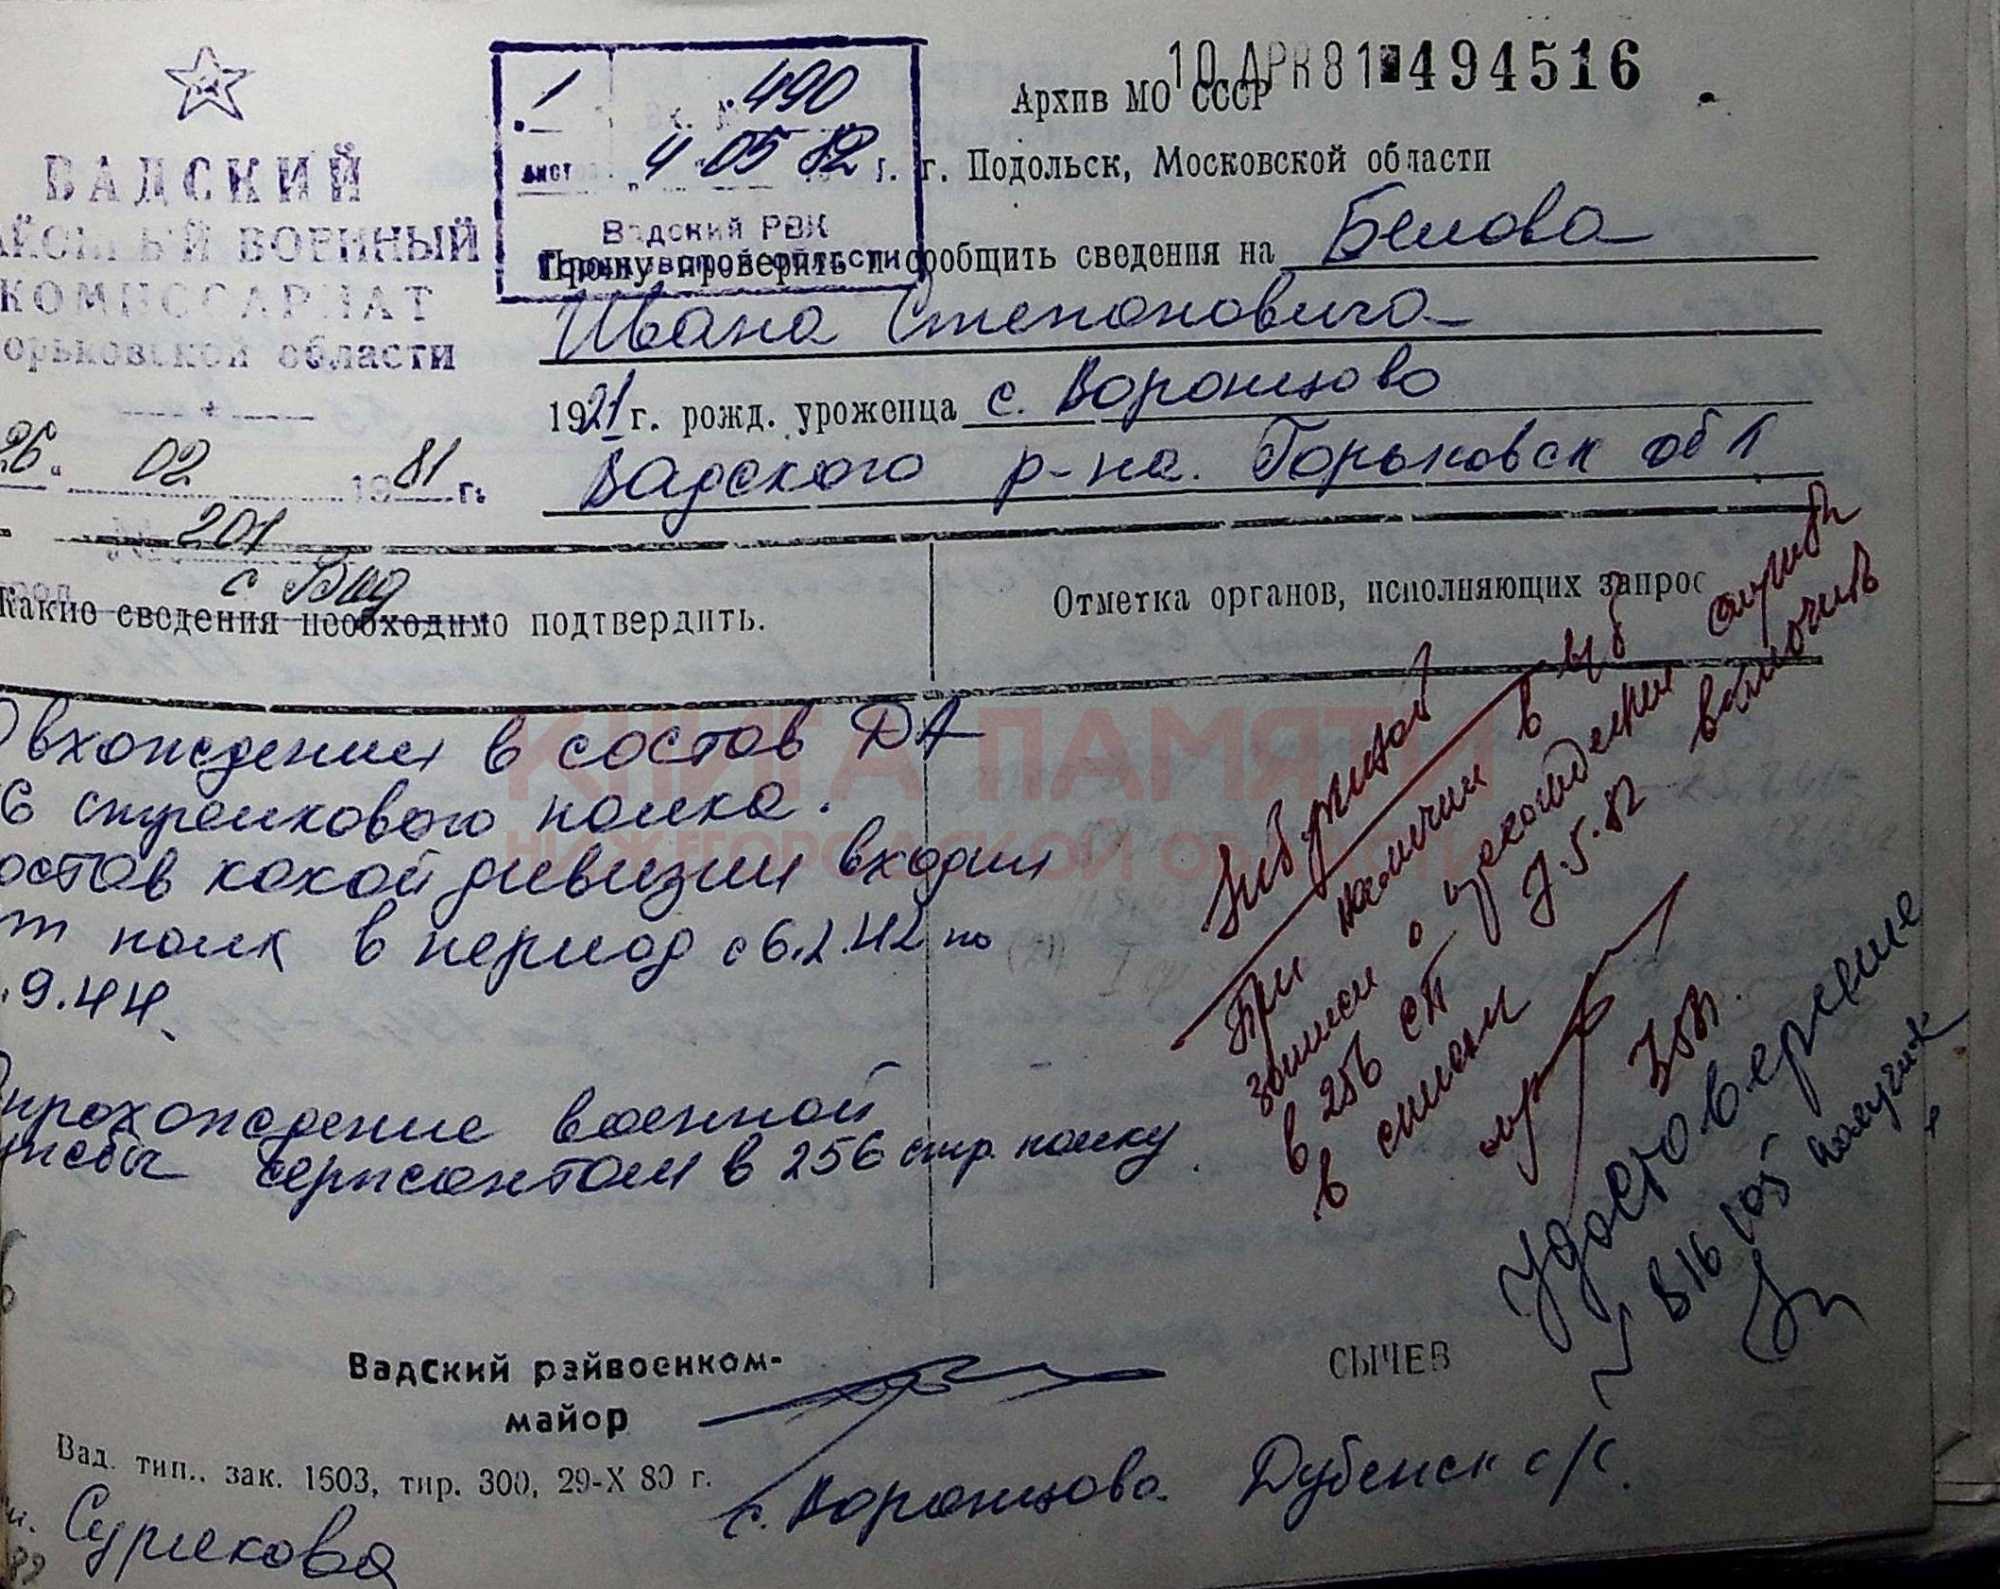 ВАДСКИЙ
ВОЕННЫЙ
КОМИССАРИАТ
орьковской области
26. 02 1981 г.
201
с Вад
1 490
лист 4 05 82 г.
Вадский РВК
10 АПР 81 494516
Архив МО СССР
г. Подольск, Московской области
Прошу проверить и сообщить сведения на Белова
Ивана Степановича
1921 г. рожд. уроженца с. Воронцово
Вадского р-на. Горьковск обл
Какие сведения необходимо подтвердить.
Отметка органов, исполняющих запрос
О вхождении в состав ДА
6 стрелкового полка.
остав какой дивизии входил
полк в период с 6.2.42 по
.9.44.
прохождение военной
службы сержантом в 256 стр. полку.
При наличии в в/б
записи о прохождении службы
в 256 СП 7.5.82 включить
в списки
Удостоверение
получил
КНИГА ПАМЯТИ
НИЖЕГОРОДСКОЙ ОБЛАСТИ
Вадский райвоенком-
майор
СЫЧЕВ
Вад. тип., зак. 1603, тир. 300, 29-X 80 г.
с. Воронцово Дубенск с/с.
Сурикова